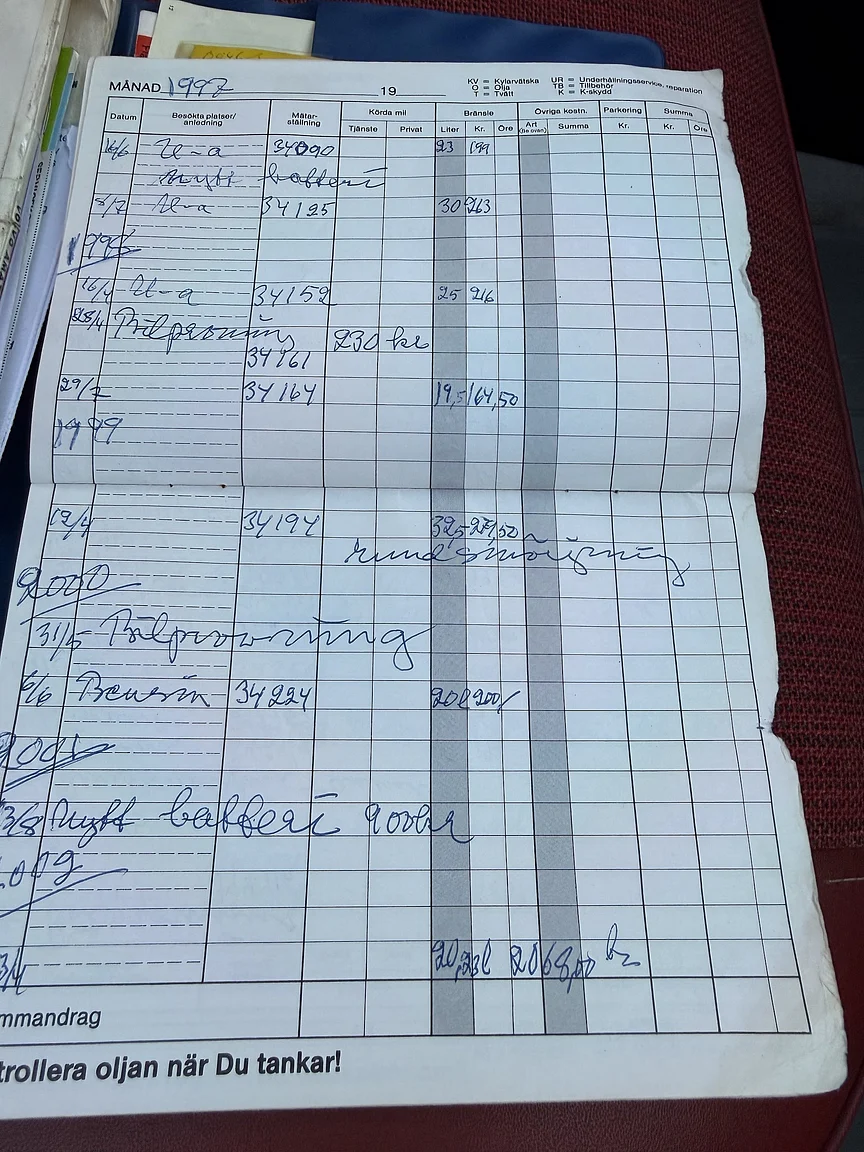 MÅNAD 1997 19
KV = Kylarvätska UR = Underhållningsservice, reparation
O = Olja TB = Tillbehör
T = Tvätt K = K-skydd
Datum Besökta platser/anledning Mätarställning Körda mil Bränsle Övriga kostn. Parkering Summa
Tjänste Privat Liter Kr. Öre Art (se ovan) Summa Kr. Kr. Öre
16/6 U-a 34090 23 199
Nytt batteri
8/7 U-a 34125 30 263
1998
16/4 U-a 34152 25 216
28/4 Bilprovning 230 kr
34161
29/7 34164 19,5 164,50
1999
12/4 34194 32,5 279,50
rundsmörjning
2000
31/5 Bilprovning
6/6 Bensin 34224 20 l 200/
2001
3/8 Nytt batteri 900kr
20,23l kr
mmandrag
trollera oljan när Du tankar!